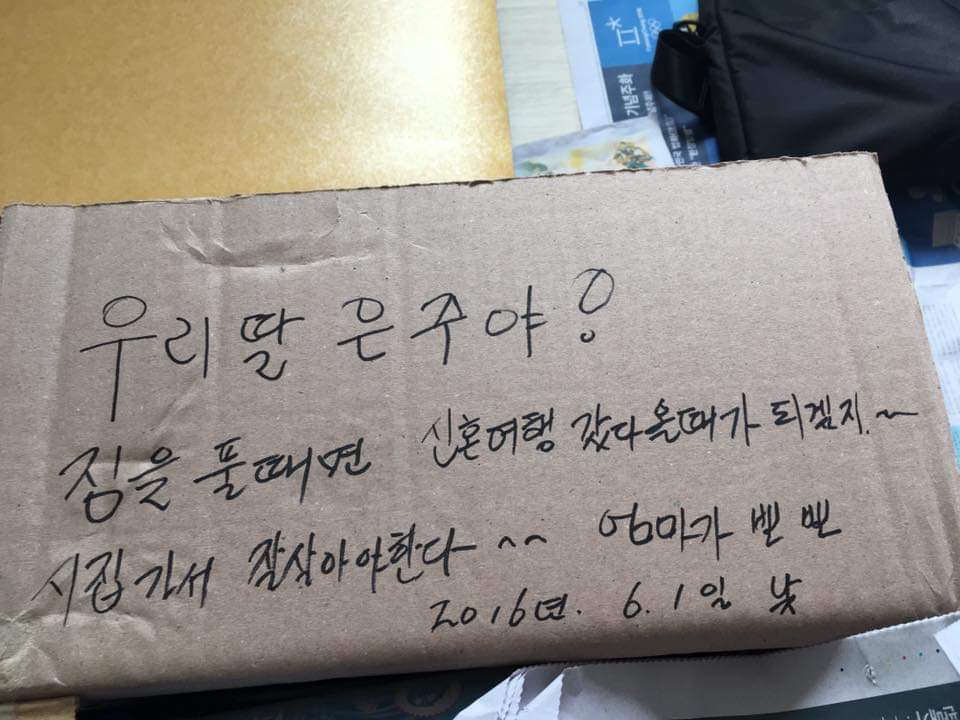 기념주화
우리딸 은주야!
짐을 풀때면 신혼여행 갔다올때가 되겠지.~
시집가서 잘살아야한다~ ^^ 엄마가 뽀뽀
2016년. 6.1일 낮